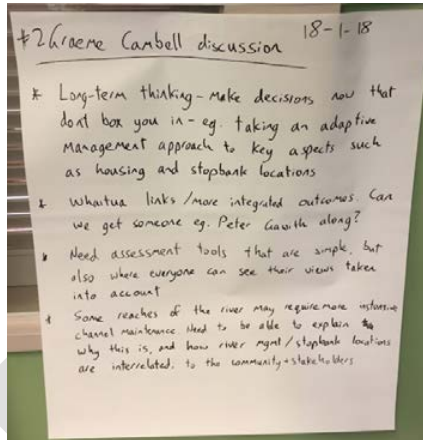 #2 Graeme Cambell discussion 18-1-18
* Long-term thinking - Make decisions now that
dont box you in - eg. taking an adaptive
Management approach to key aspects such
as housing and stopbank locations
* Whaitua links / more integrated outcomes. Can
we get someone eg. Peter Gawith along?
* Need assessment tools that are simple, but
also where everyone can see their views taken
into account
* Some reaches of the river may require more
channel maintenance. Need to be able to explain
why this is, and how river mgmt / stopbank locations
are interrelated, to the community + stakeholders